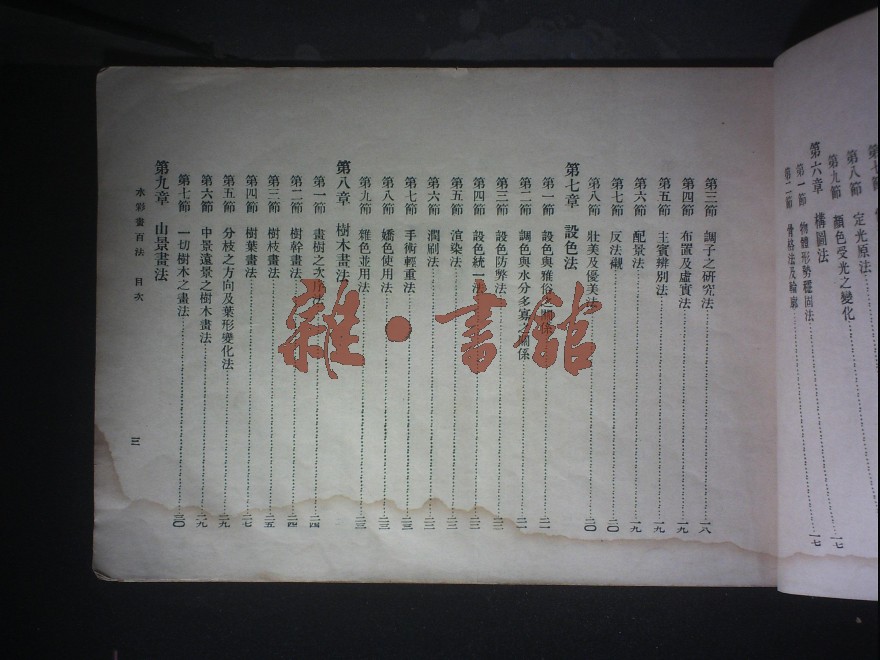 第八節 定光原法
第九節 顏色受光之變化……一七
第六章 構圖法
第一節 物體形勢穩固法
第二節 骨格法及輪廓……一七
第三節 調子之研究法……一八
第四節 布置及虛實法……一九
第五節 主賓辨別法……一九
第六節 配景法……一九
第七節 反法襯……二〇
第八節 壯美及優美法……二〇
第七章 設色法
第一節 設色與雅俗之關係……二一
第二節 調色與水分多寡之關係……二一
第三節 設色防弊法……二二
第四節 設色統一法……二二
第五節 渲染法……二二
第六節 潤刷法……二二
第七節 手術輕重法……二三
第八節 嬌色使用法……二三
第九節 雜色並用法……二三
第八章 樹木畫法
第一節 畫樹之次序法……二四
第二節 樹幹畫法……二四
第三節 樹枝畫法……二五
第四節 樹葉畫法……二七
第五節 分枝之方向及葉形變化法……二九
第六節 中景遠景之樹木畫法……二九
第七節 一切樹木之畫法……三〇
第九章 山景畫法
水彩畫百法 目次
三
雜·書館